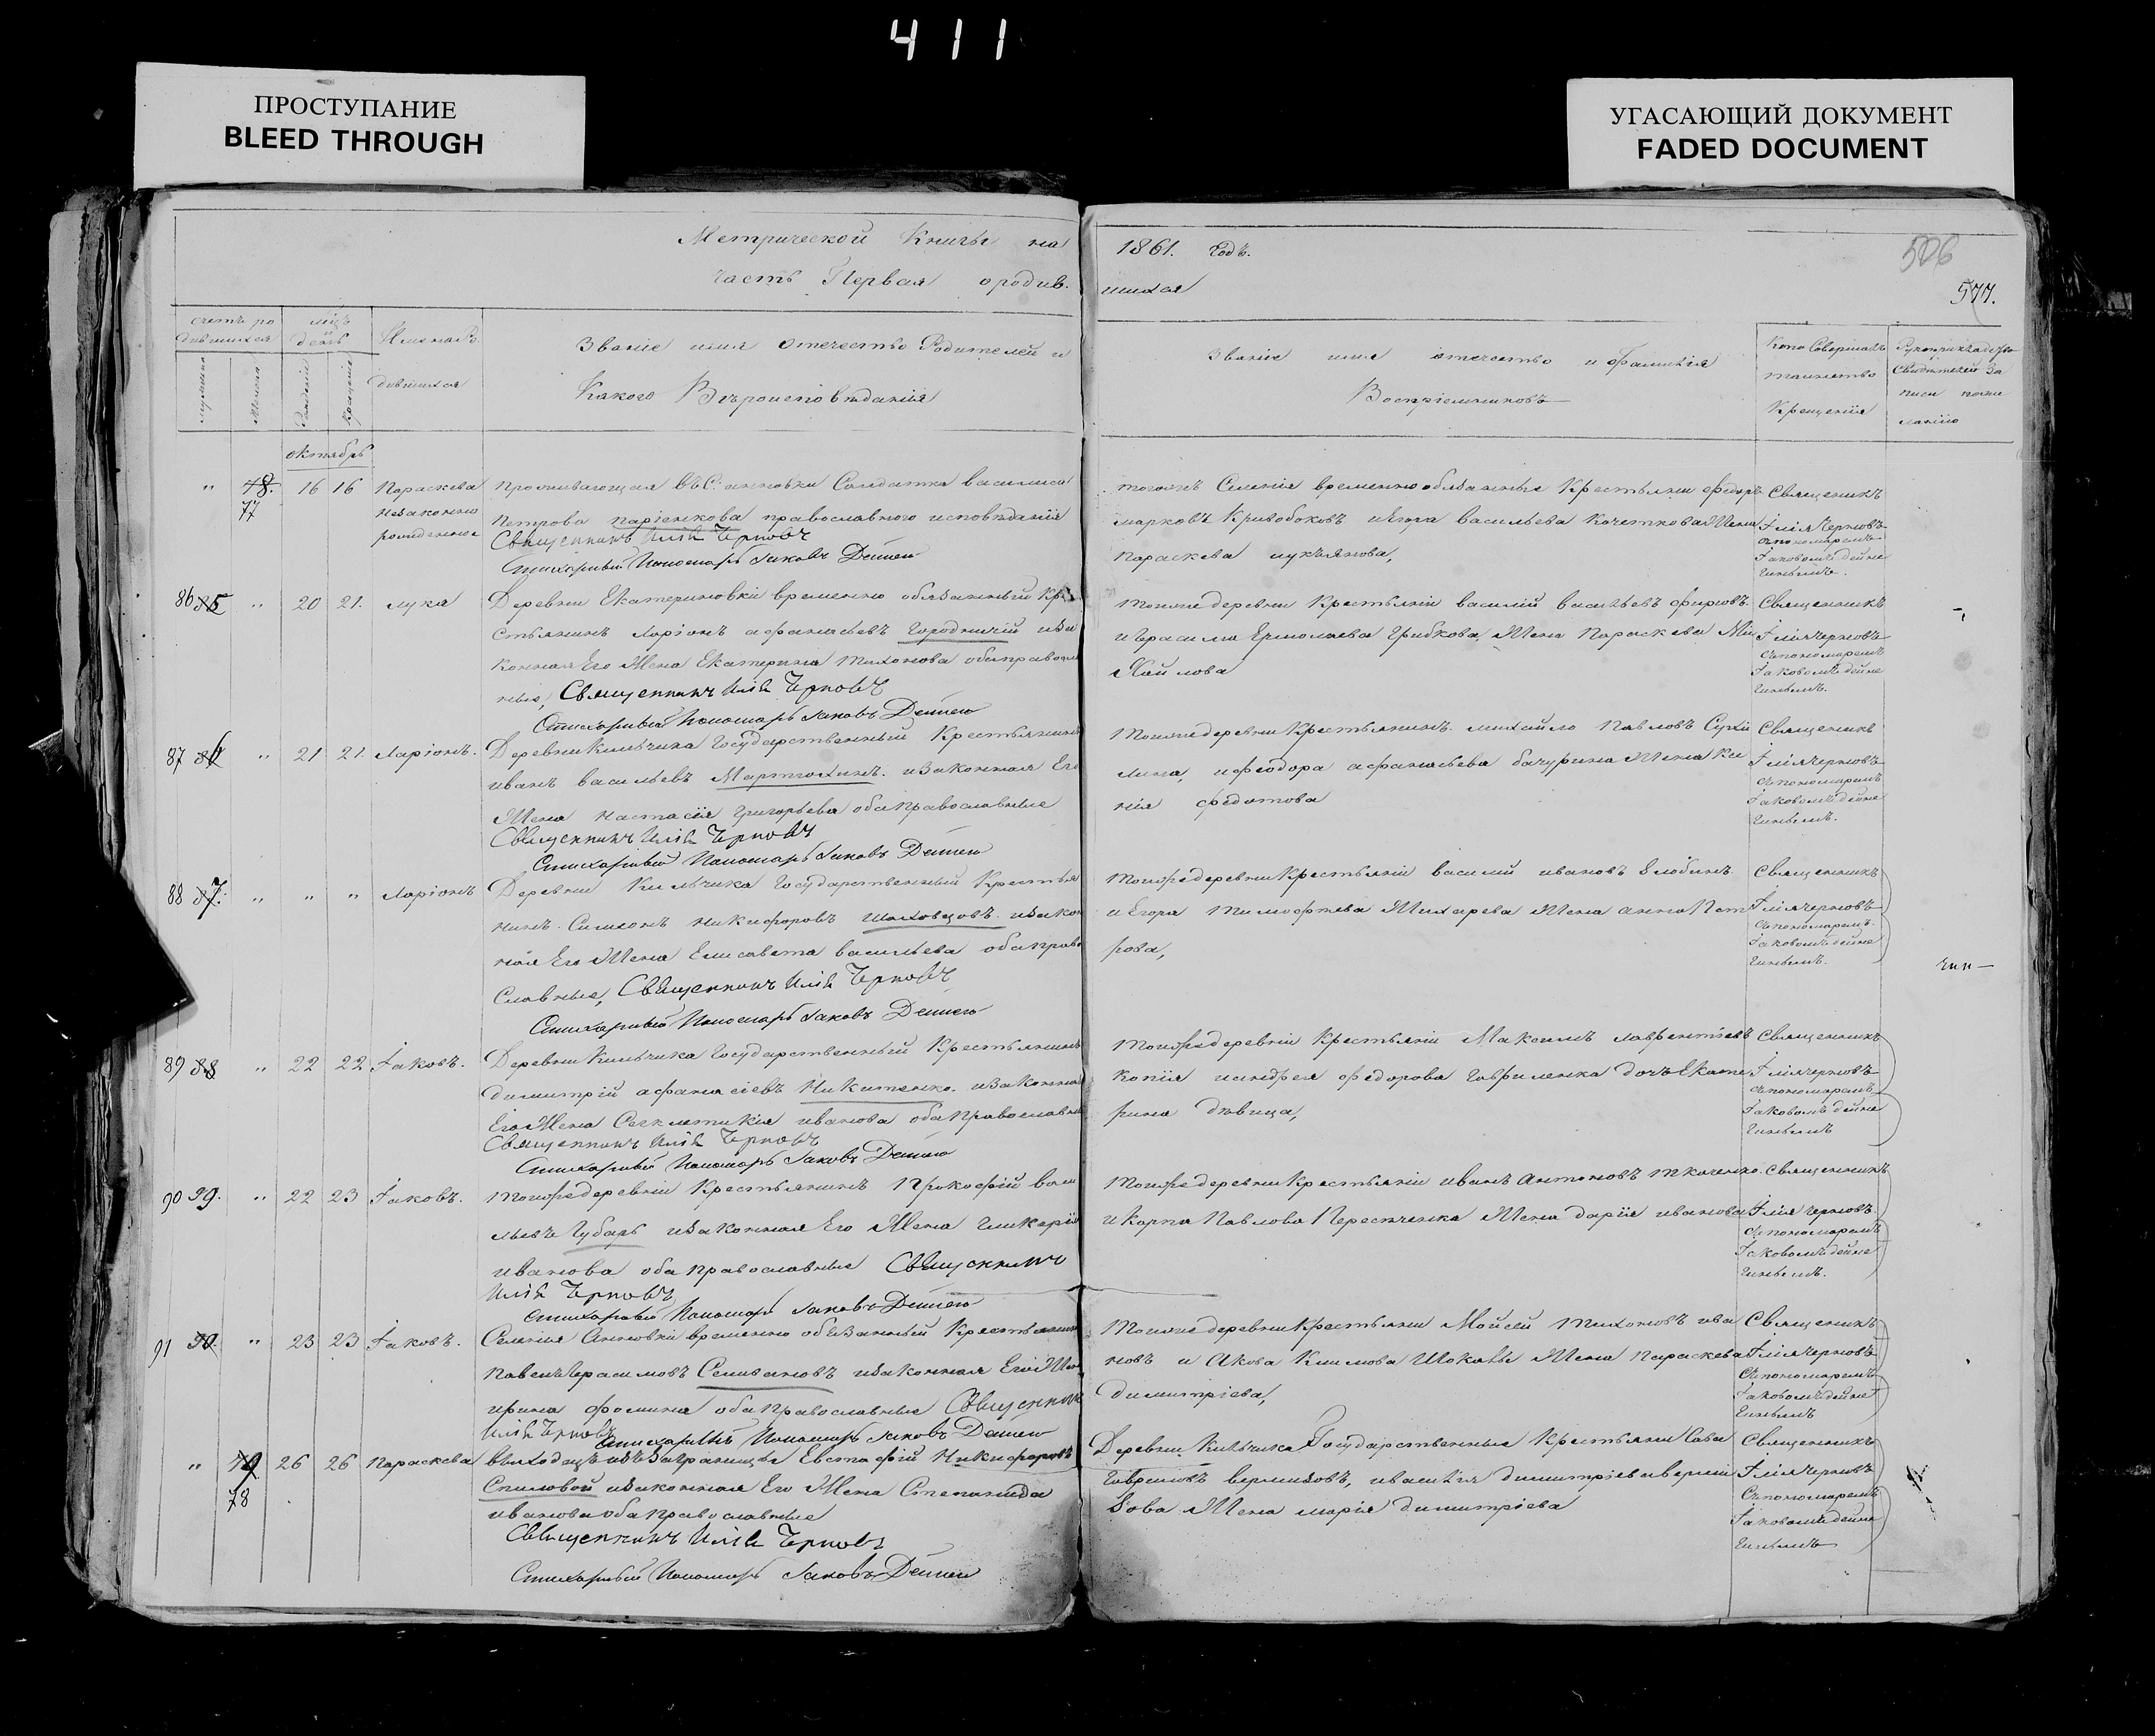 411
ПРОСТУПАНИЕ
BLEED THROUGH
УГАСАЮЩИЙ ДОКУМЕНТ
FADED DOCUMENT
Метрической Книги на
часть Первая ородив.
1861. Годъ.
шихся
506
577.
счетъ ро
дившихся
мѣц
и
день
Имена Ро
дившихся
Званіе имя отечество Родителей и
Какого Вѣроисповѣданія
мужеска
женска
Рожденіе
Крещеніе
Званіе имя отечество и фамилія
Воспріемниковъ
Кто Совершалъ
таинство
Крещенія
Рукоприкладство
Свидѣтелей За
писи по же
ланію
октябрь
" 78. 16 16 Параскева
77
незаконно
рожденная
проживающая въ С. анновки Солдатка василиса
Петрова паріенкова православного исповѣданія
Священникъ Илія Черновъ
Стихарный Пономарь Іаковъ
тогожъ Селенія временно обязанные Крестьяни федоръ
марковъ Кривобоковъ иЕгора васильева Кочеткова Жена
параскева лукьянова,
Священникъ
Іліячерновъ
съпономаремъ
Іаковомъ дейне
86 85 " 20 21. лука
Деревни Екатериновки временно обязанный Кре
стьянинъ ларіонъ афанасьевъ Городничій иза
конная Его Жена Екатерина тихонова обаправосла
ные, Священникъ Илія Черновъ
Стихарный Пономарь Іаковъ
тоижедеревни Крестьяніи василій васильевъ фирсовъ
и Герасима Ермолаева Грибкова Жена Параскева Ми
хайлова
Священникъ
Іліячерновъ
съпономаремъ
Іаковомъ дейне
87 86 " 21 21. Ларіонъ.
Деревни Кильчика Государственный Крестьянинъ
иванъ васильевъ Мартюхинъ. изаконная Его
Жена Настасія григорьева обаправославные
Священникъ Илія Черновъ
Стихарный Пономарь Іаковъ
тоижедеревни Крестьянинъ михайло павловъ Сухи
лина, ифеодора афанасьева бачурина Жена Ксе
нія федотова
Священникъ
Іліячерновъ
съпономаремъ
Іаковомъ дейне
88 87. " " " Ларіонъ
Деревни Кильчика Государственный Крестья
нинъ Симеонъ никифоровъ шаховцовъ изакон
ная Его Жена Елисавета васильева обаправо
славные, Священникъ Илія Черновъ
Стихарный Пономарь Іаковъ
тоижедеревни Крестьяніи василій ивановъ Злобинъ
и Егора тимофѣева Жихарева Жена анна Пет
рова,
Священникъ
Іліячерновъ
съпономаремъ
Іаковомъ дейне
89 88 " 22 22 Іаковъ.
Деревни Кильчика Государственный Крестьянинъ
димитрій афанасіевъ Никитенко. изаконная
Его Жена ивановна обаправославные
Священникъ Илія Черновъ
Стихарный Пономарь Іаковъ
тоижедеревніи Крестьяніи Максимъ лаврентіевъ
копія иандрея федорова Гавриленка дочь Екате
рина дѣвица,
Священникъ
Іліячерновъ
съпономаремъ
Іаковомъ дейне
90 89. " 22 23 Іаковъ.
тоижедеревніи Крестьянинъ Прокофій васи
льевъ Губарь изаконная Его Жена гликерія
иванова оба православные Священникъ
Илія Черновъ
Стихарный Пономарь Іаковъ
тоижедеревни Крестьяніи иванъ антоновъ ткаченко.
и Карпа Павлова Пересѣченка Жена дарія иванова
Священникъ
Ілія Черновъ
съпономаремъ
Іаковомъ дейне
91 90. " 23 23 Іаковъ.
Селенія Анновки временно обязанный Крестьянинъ
павелъ Герасимовъ Селивановъ изаконная Его Жена
ирина фомина обаправославные Священникъ
Илія Черновъ Стихарный Пономарь Іаковъ
тоижедеревни Крестьяни Мойсей тихоновъ ива
новъ и Акова Климова Жена параскева
димитріева,
Священникъ
Іліячерновъ
съпономаремъ
Іаковомъ дейне
" 79 26 26 Параскева
78
выходецъ изъ заграницы Евстафій Никифоровъ
Спиловой изаконная Его Жена Степанида
иванова обаправославные
Священникъ Илія Черновъ
Стихарный Пономарь Іаковъ
Деревни Кильчика Государственные Крестьяни Сава
Гавриловъ верзиловъ, димитріева верзи
лова Жена марія димитріева
Священникъ
Іліячерновъ
Съпономаремъ
Іаковомъ дейне